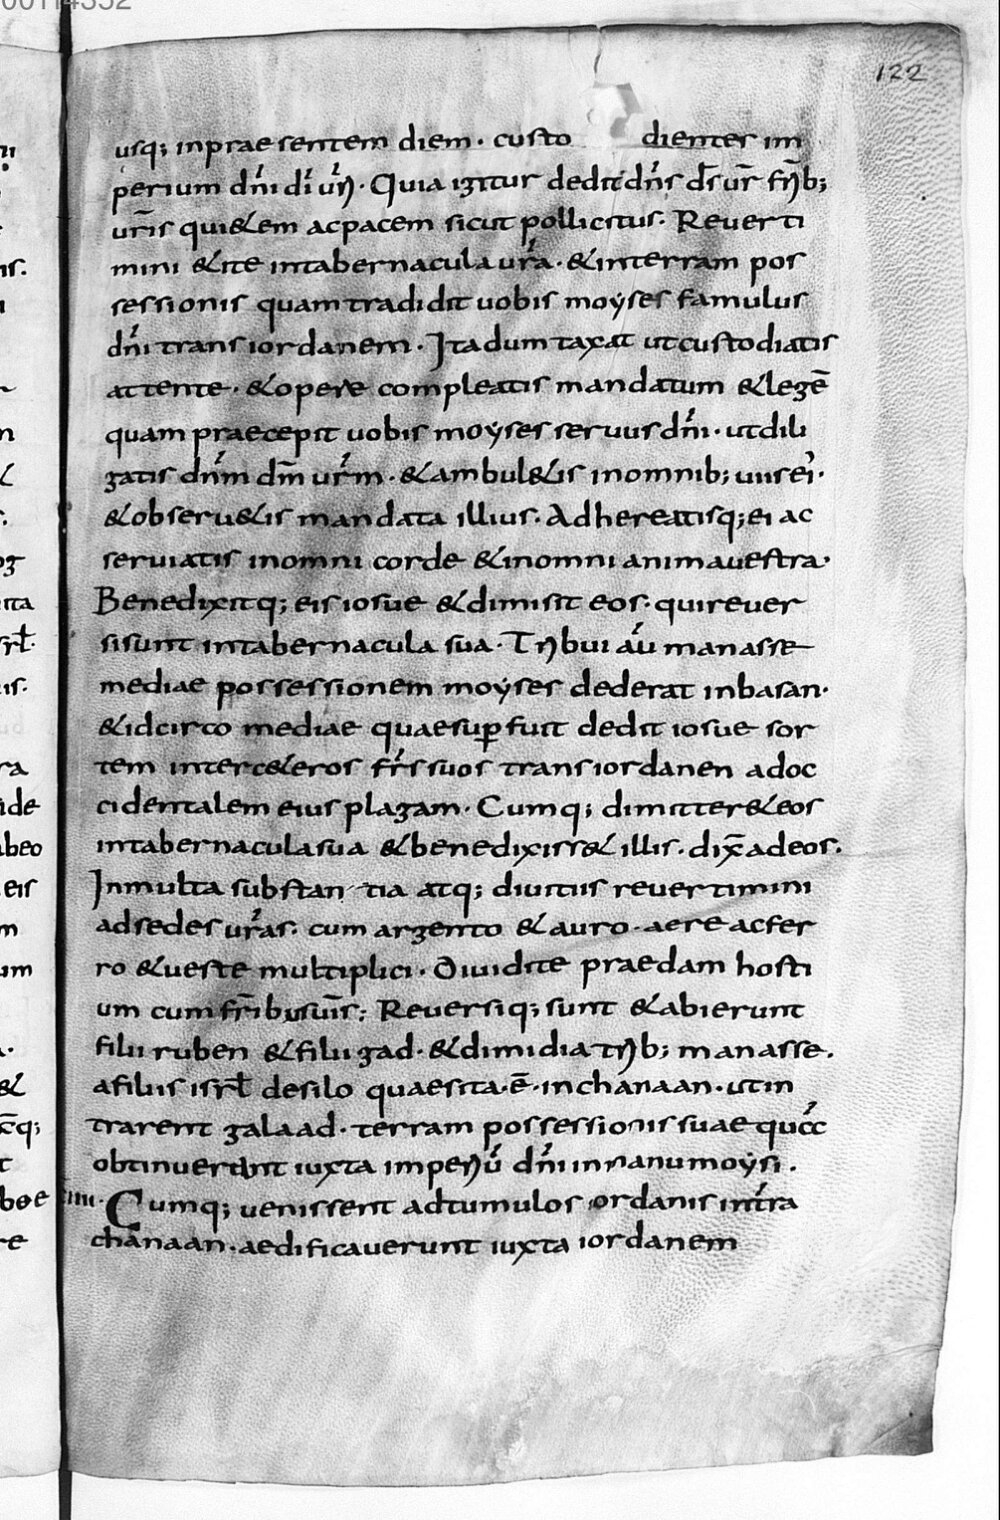 00114352
122
usq; inpraesentem diem · custo dientes im
perium dn̄i dī ur̄i · Quia igitur dedit dn̄s ds̄ ur̄ fr̄ib;
ur̄is qui&em acpacem sicut pollicitus · Reuerti
mini &ite intabernacula ur̄a · &interram pos
sessionis quam tradidit uobis moẏses famulus
dn̄i trans iordanem · Ita dum taxat ut custodiatis
attente · &opere compleatis mandatum &legē
quam praecepit uobis moẏses seruus dn̄i · utdili
gatis dn̄m dm̄ ur̄m · &ambul&is inomnib; uiis ei ·
&obseru&is mandata illius · Adhereatisq; ei ac
seruiatis inomni corde &inomni anima uestra ·
Benedixitq; eis iosue &dimisit eos · qui reuer
si sunt intabernacula sua · Tribui aū manasse
mediae possessionem moẏses dederat inbasan ·
&idcirco mediae quae suꝑfuit dedit iosue sor
tem interc&eros fr̄s suos trans iordanen adoc
cidentalem eius plagam · Cumq; dimitter&eos
intabernacula sua &benedixiss& illis · dix̄ adeos ·
Inmulta substan tia atq; diuitiis reuertimini
adsedes ur̄as · cum argento &auro · aere acfer
ro &ueste multiplici · Diuidite praedam hosti
um cum fr̄ibus ur̄is : Reuersiq; sunt &abierunt
filii ruben &filii gad · &dimidia trib; manasse ·
afiliis isrl̄ desilo quae sita · ē · inchanaan · utin
trarent galaad · terram possessionis suae quā
obtinuerant iuxta imperiū dn̄i inmanu moẏsi ·
Cumq; uenissent adtumulos iordanis inter̄ra
chanaan · aedificauerunt iuxta iordanem